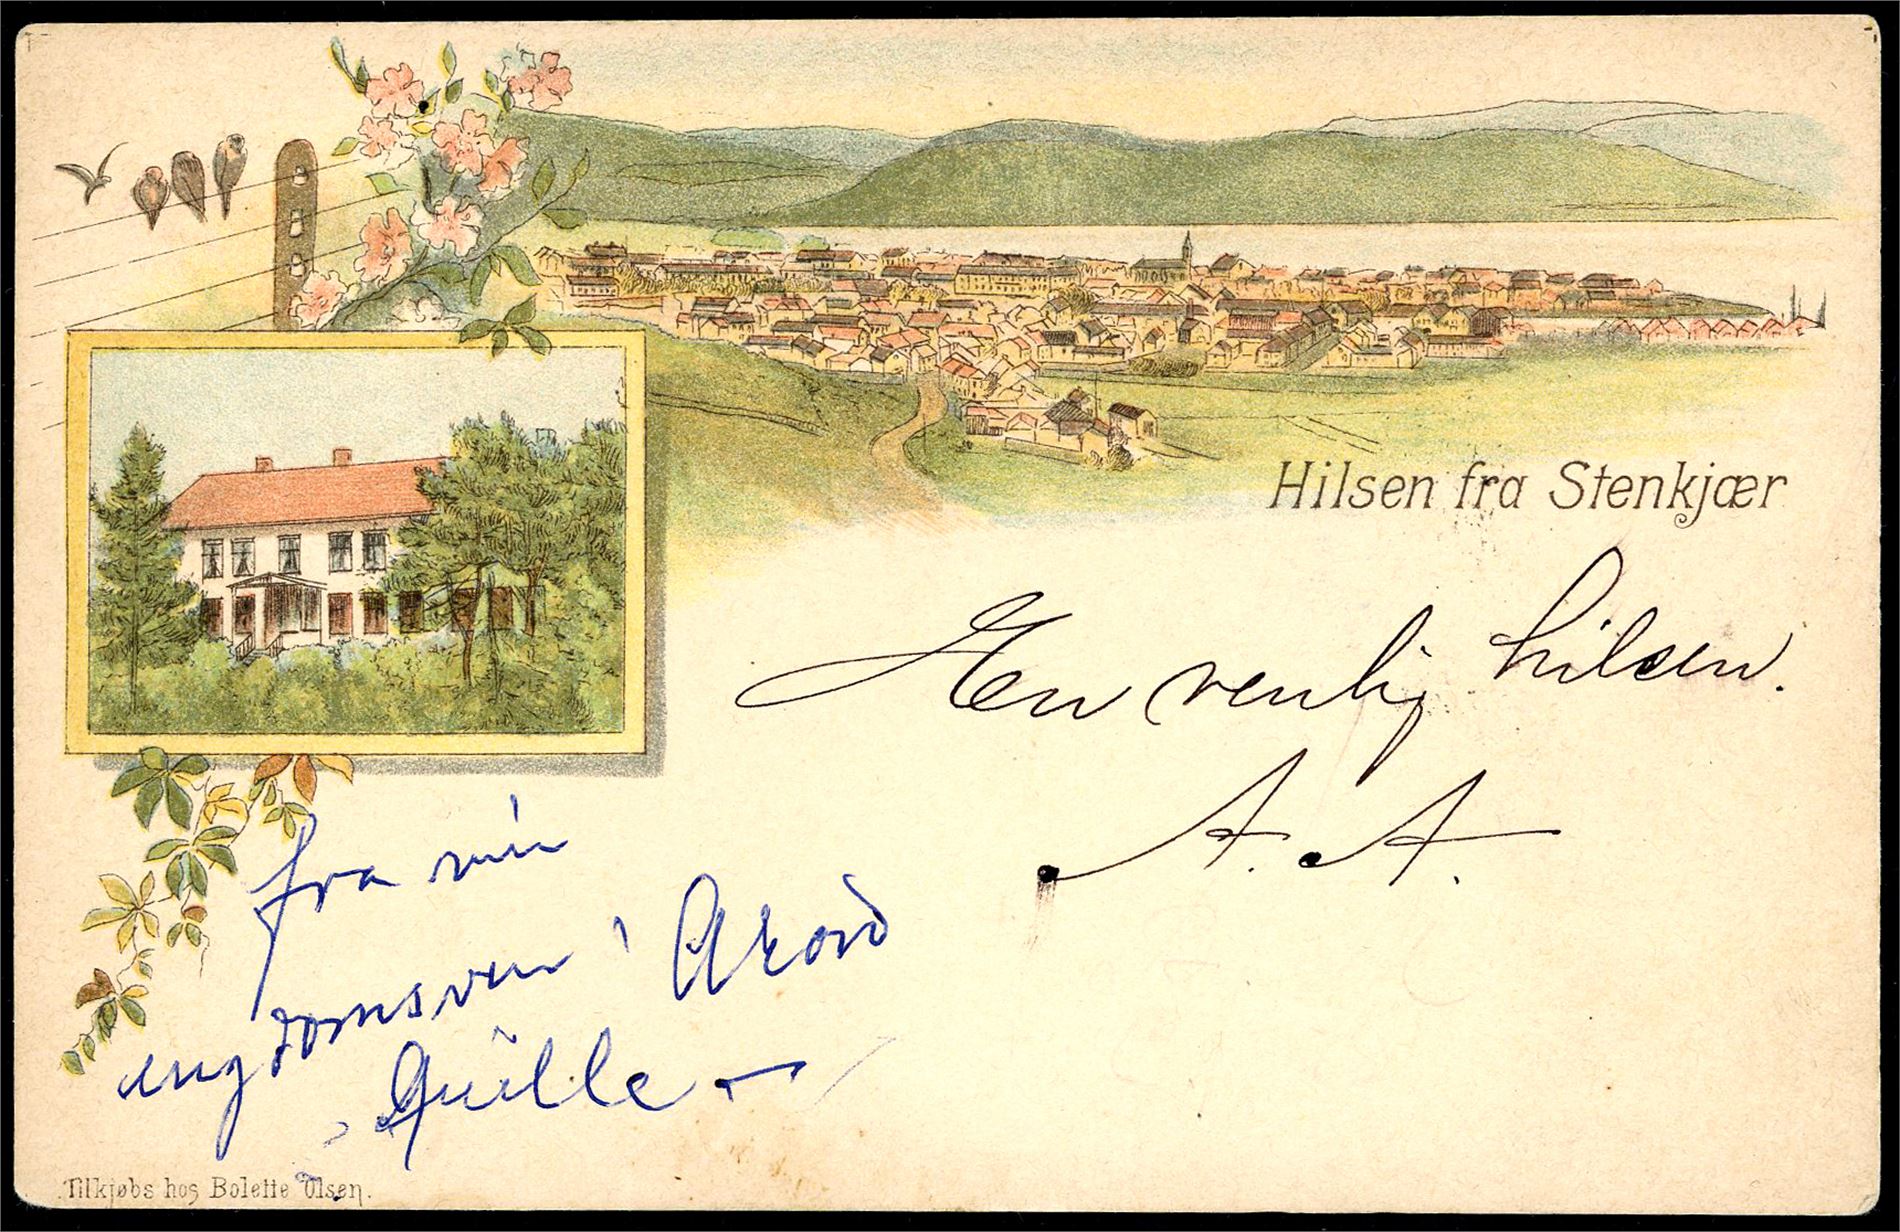 Hilsen fra Stenkjær
En venlig hilsen.
A. A.
fra min
ungdomsven
Tilkjøbs hos Bolette Olsen.